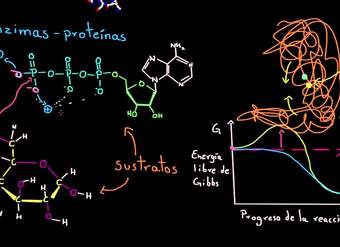 nzimas-proteínas
NH₂
N
N
N
N
O
O
O
O
P
O
P
O
P
O
O
O
O
O
HO
OH
G
Energía
libre de
Gibbs
Sustratos
H
O
O
H
H
H
H
O
H
O
H
Progreso de la reacci